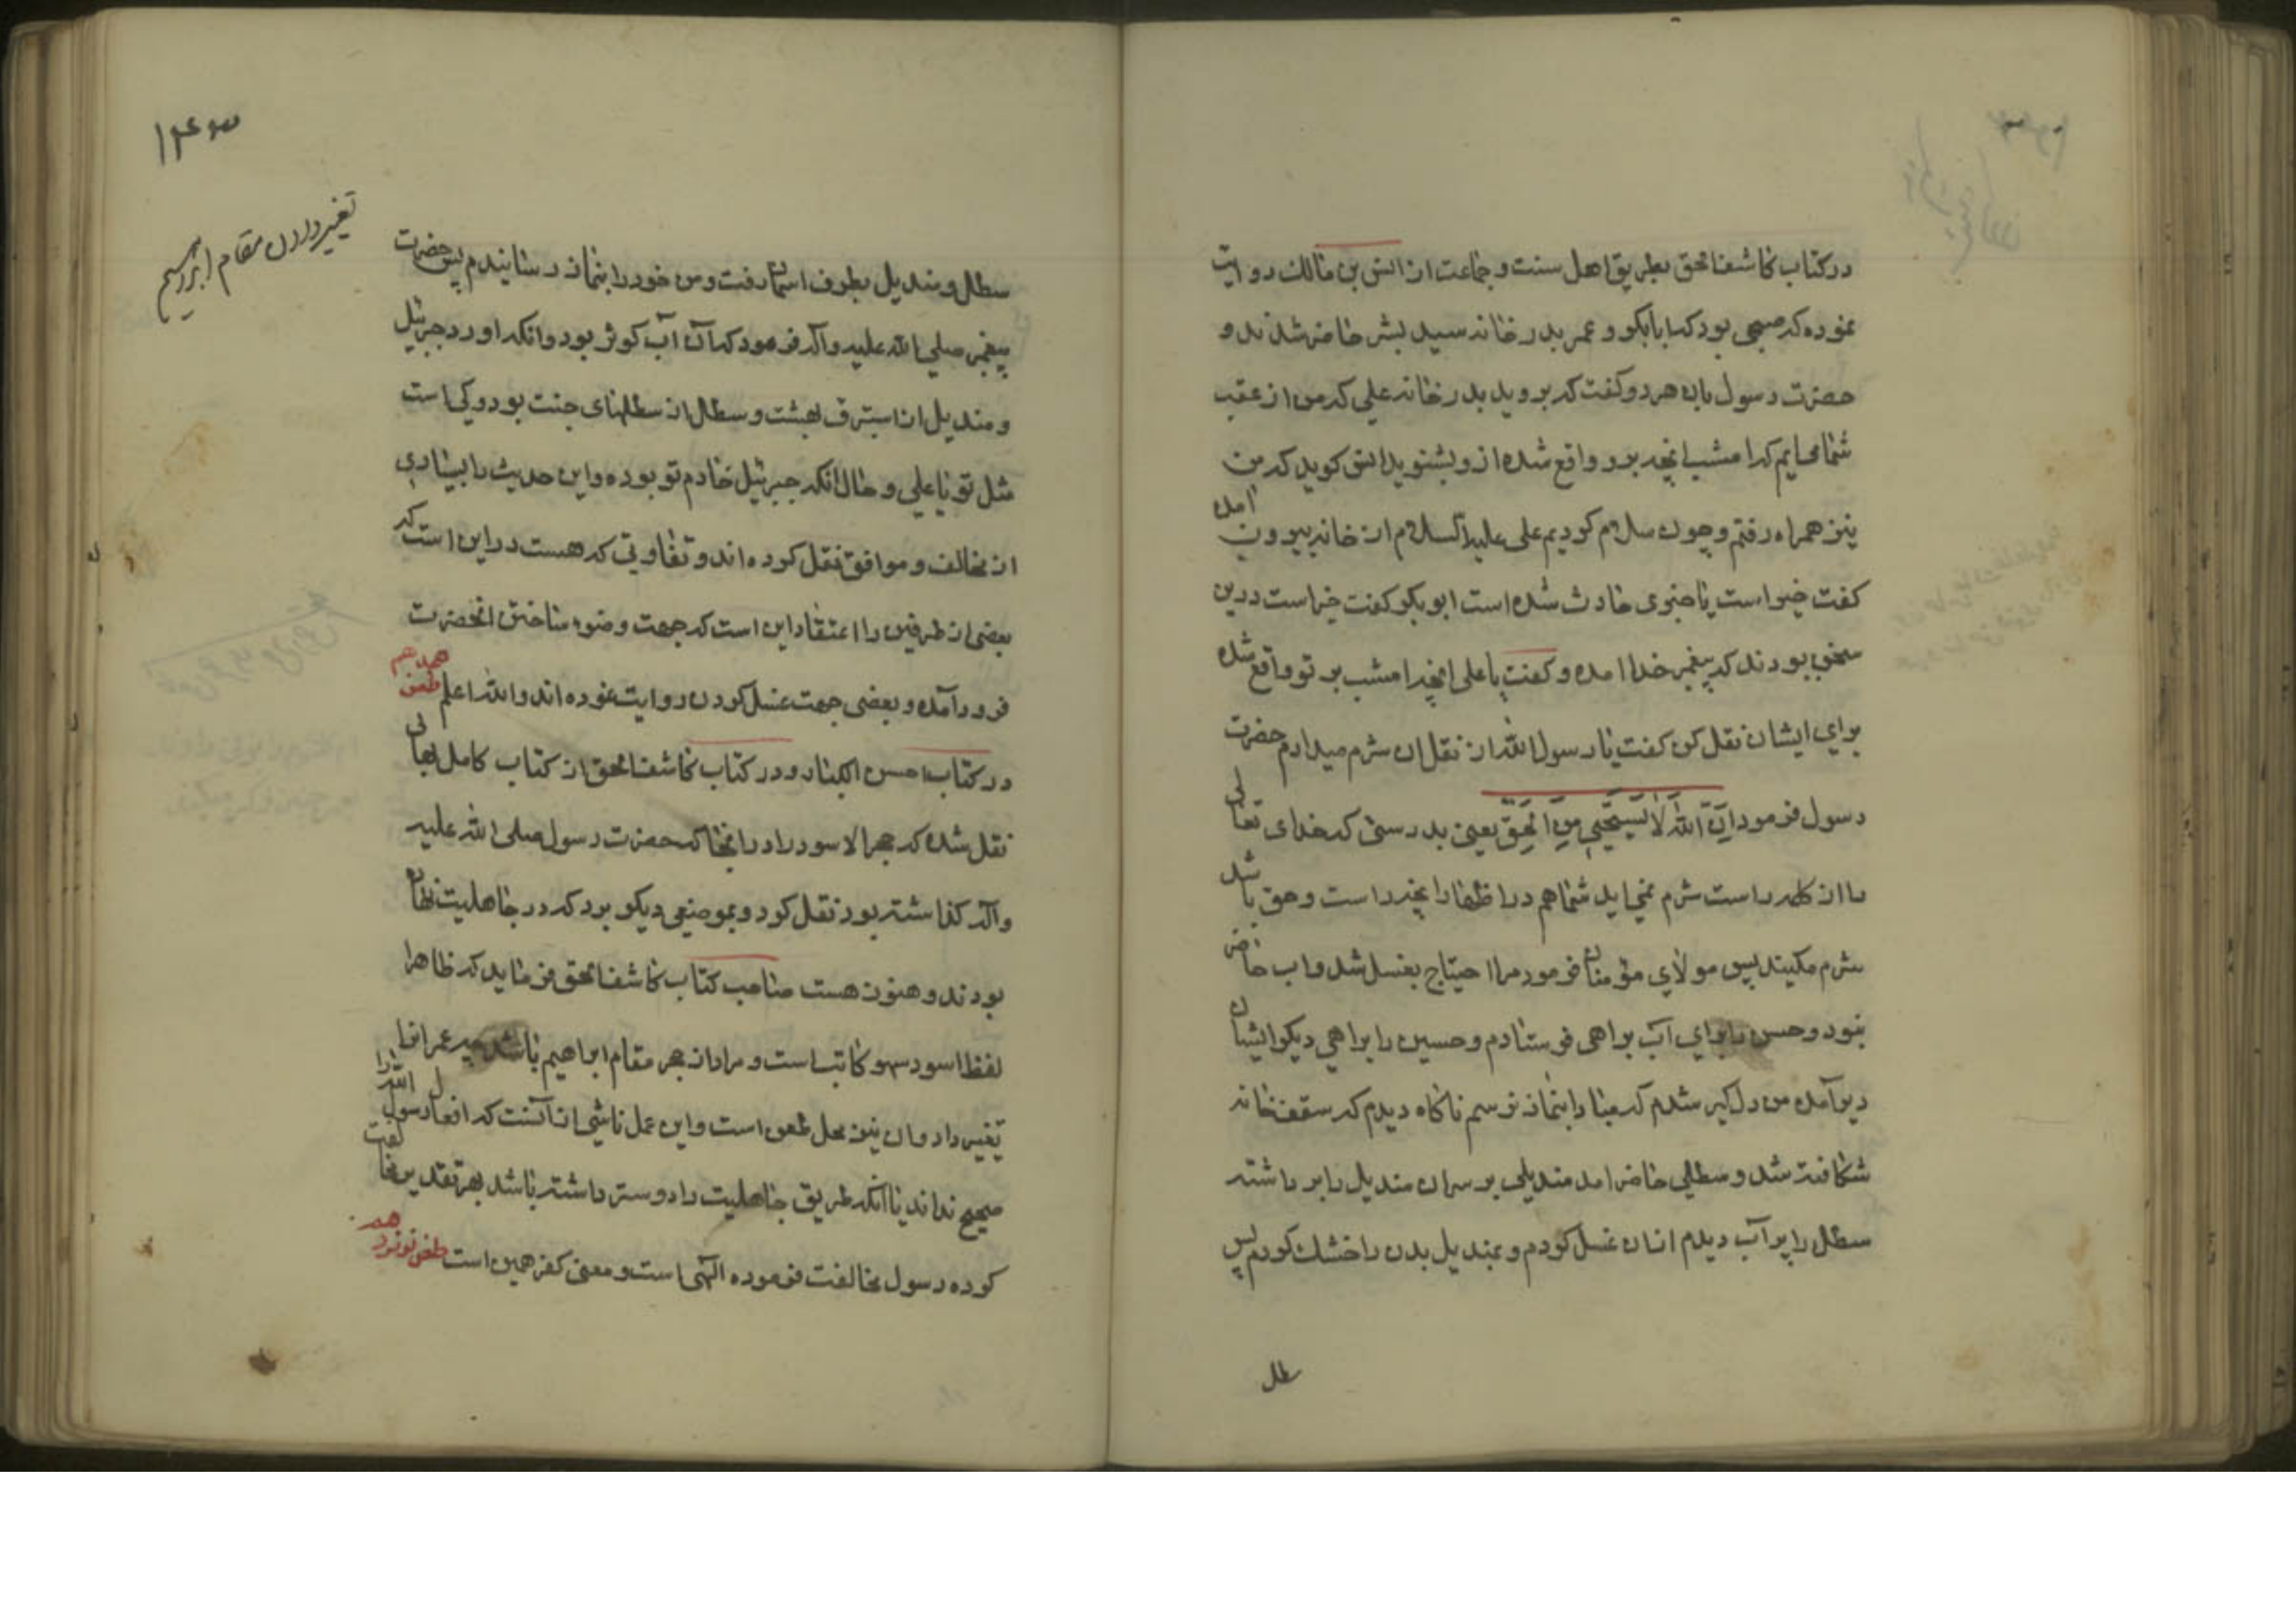 در کتاب کاشف الحق بطریق اهل سنت و جماعت از انس بن مالک روایت
نموده که صبحی بود که ابابکر و عمر بدر خانه سید بشر حاضر شدند و
حضرت رسول بان هر دو گفت که بروید بدر خانه علی که من از عقب
شما می‌ایم که امشب انچه برو واقع شده ازو بشنوید انس کوید که من
نیز همراه رفتم و چون سلام کردیم علی علیه السلام از خانه بیرون امد
کفت خیر است یا چیزی حادث شده است ابوبکر کفت خیر است درین
سخن بودند که پیغمبر خدا امد و کفت یا علی انچه امشب بر تو واقع شده
برای ایشان نقل کن کفت یا رسول الله از نقل ان شرم میدارم حضرت
رسول فرمود اِنَّ اللّٰهَ لَا یَسْتَحْیِی مِنَ الْحَقِّ یعنی بدرستی که خدای تعالی
را از کلمه راست شرم نمی‌اید شما هم در اظهار انچه راست و حق باشد
شرم مکنید پس مولای مؤمنان فرمود مرا احتیاج بغسل شد و اب حاضر
نبود و حسن را برای آب براهی فرستادم و حسین را براهی دیکر ایشان
دیر آمدند من دل‌کیر شدم که مبادا بنماز نرسم ناکاه دیدم که سقف خانه
شکافته شد و سطلی حاضر امد مندیلی بر سر ان مندیل را برداشته
سطل را پر آب دیدم از ان غسل کردم و بمندیل بدن را خشک کردم پس
سطل
۱۴۳
تغییر دادن مقام ابراهیم
سطل و مندیل بطرف اسمان رفت و من خود را بنماز رسانیدم پس حضرت
پیغمبر صلی الله علیه و آله فرمود که آن آب کوثر بود و انکه اورد جبرئیل
و مندیل از استبرق بهشت و سطل از سطلهای جنت بود و کی است
مثل تو یا علی و حال انکه جبرئیل خادم تو بوده و این حدیث را بسیاری
از مخالف و موافق نقل کرده‌اند و تفاوتی که هست در این است که
بعضی از طرفین را اعتقاد این است که جهت وضوء ساختن انحضرت
فرود آمده و بعضی جهت غسل کردن روایت نموده‌اند والله اعلم طعن هجدهم
در کتاب احسن الکبار و در کتاب کاشف الحق از کتاب کامل بهائی
نقل شده که حجر الاسود را از انجا که حضرت رسول صلی الله علیه
و آله کذاشته بود نقل کرد و بموضعی دیکر برد که در جاهلیت نهاده
بودند و هنوز هست صاحب کتاب کاشف الحق می‌فرماید که ظاهرا
لفظ اسود سهو کاتب است و مراد از حجر مقام ابراهیم باشد چه عمر انرا
تغییر داد و ان نیز محل طعن است و این عمل ناشی از آنست که افعال رسول الله را
صحیح نداند یا انکه طریق جاهلیت را دوستر داشته باشد بهر تقدیر مخالفت
کرده رسول مخالفت فرموده الهی است و معنی کفر همین است طعن نوزدهم